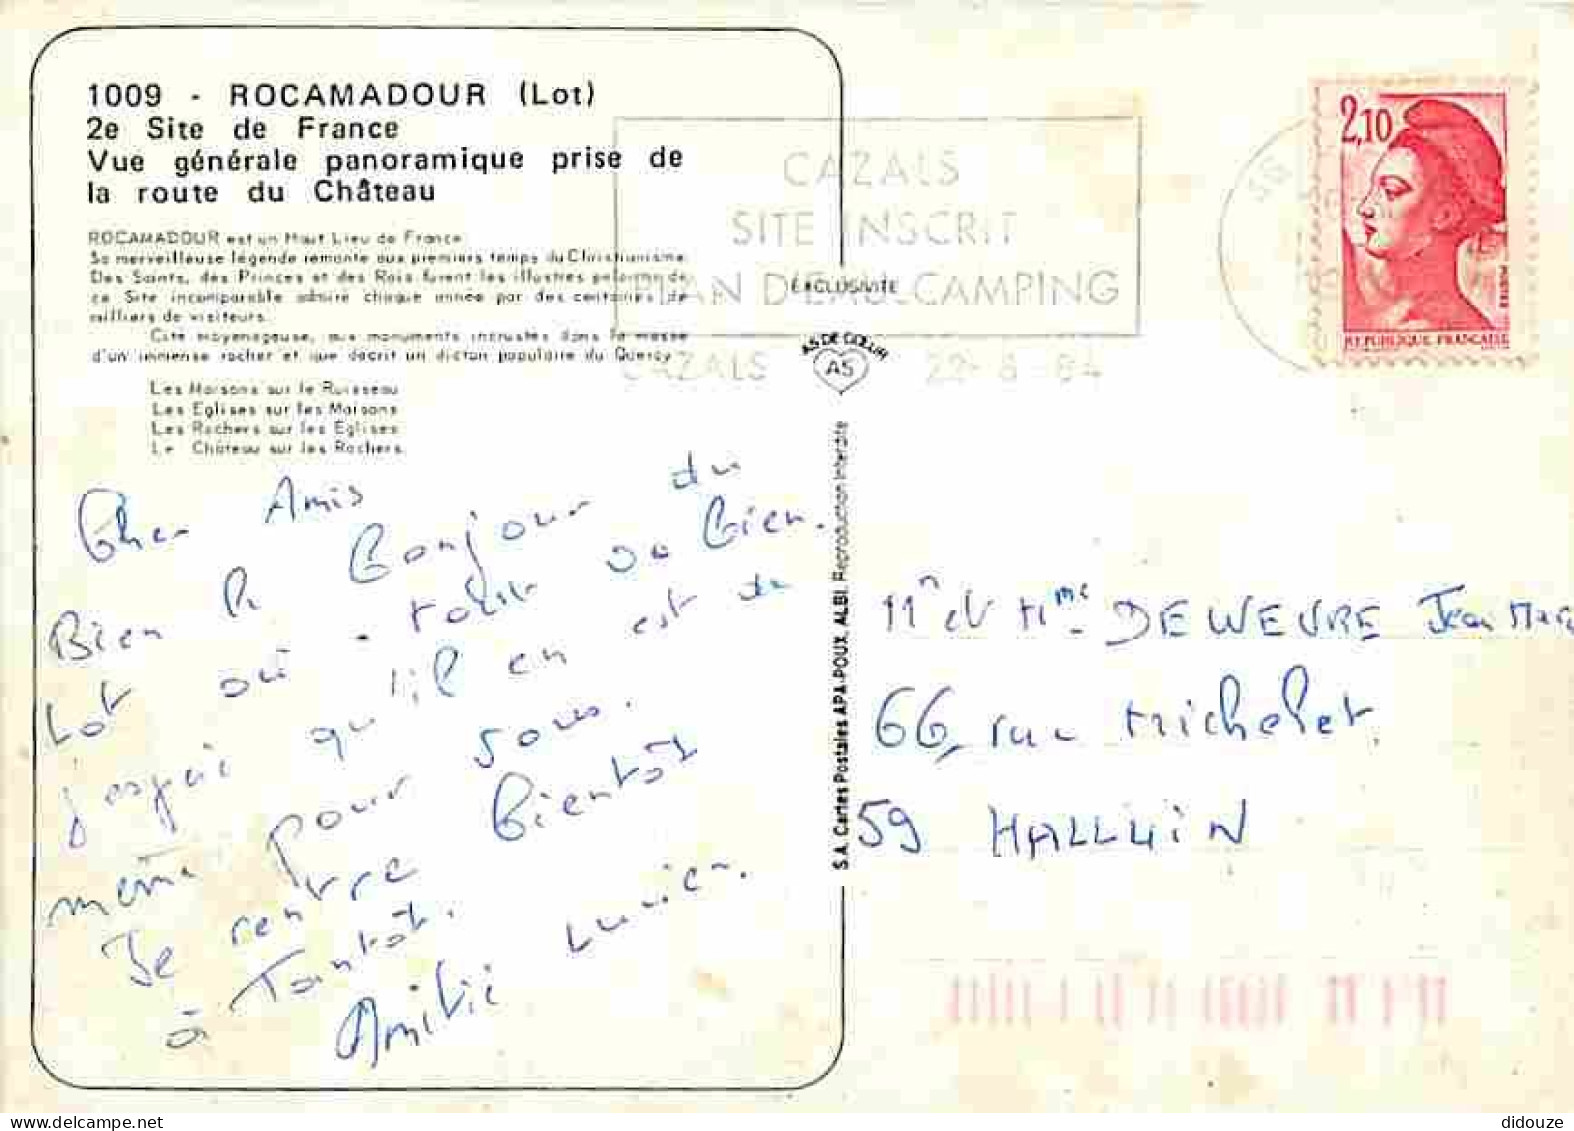 1009 - ROCAMADOUR (Lot)
2e Site de France
Vue générale panoramique prise de
la route du Château
ROCAMADOUR est un Haut Lieu de France
Sa merveilleuse légende remonte aux premiers temps du Christianisme
Des Saints, des Princes et des Rois furent les illustres pèlerins de
ce Site incomparable admiré chaque année par des centaines de
milliers de visiteurs.
Cité moyenageuse, aux monuments incrustés dans la masse
d'un immense rocher et que décrit un dicton populaire du Quercy
Les Maisons sur le Ruisseau
Les Eglises sur les Maisons
Les Rochers sur les Eglises
Le Château sur les Rochers
CAZALS
SITE INSCRIT
PLAN D'EAU CAMPING
CAZALS 22-8-84
EXCLUSIVITE
AS DE CŒUR
AS
S.A. Cartes Postales APA-POUX, ALBI. Reproduction Interdite
2,10
POSTES
REPUBLIQUE FRANCAISE
Cher Amis
Bien le bonjour du
Lot où tout va bien.
j'espère qu'il en est de
même pour vous.
Je rentre bientôt
à Tantôt.
Amitié Lucien.
Mr et Mme DEWEVRE Jean Marie
66, rue Michelet
59 HALLUIN
didouze